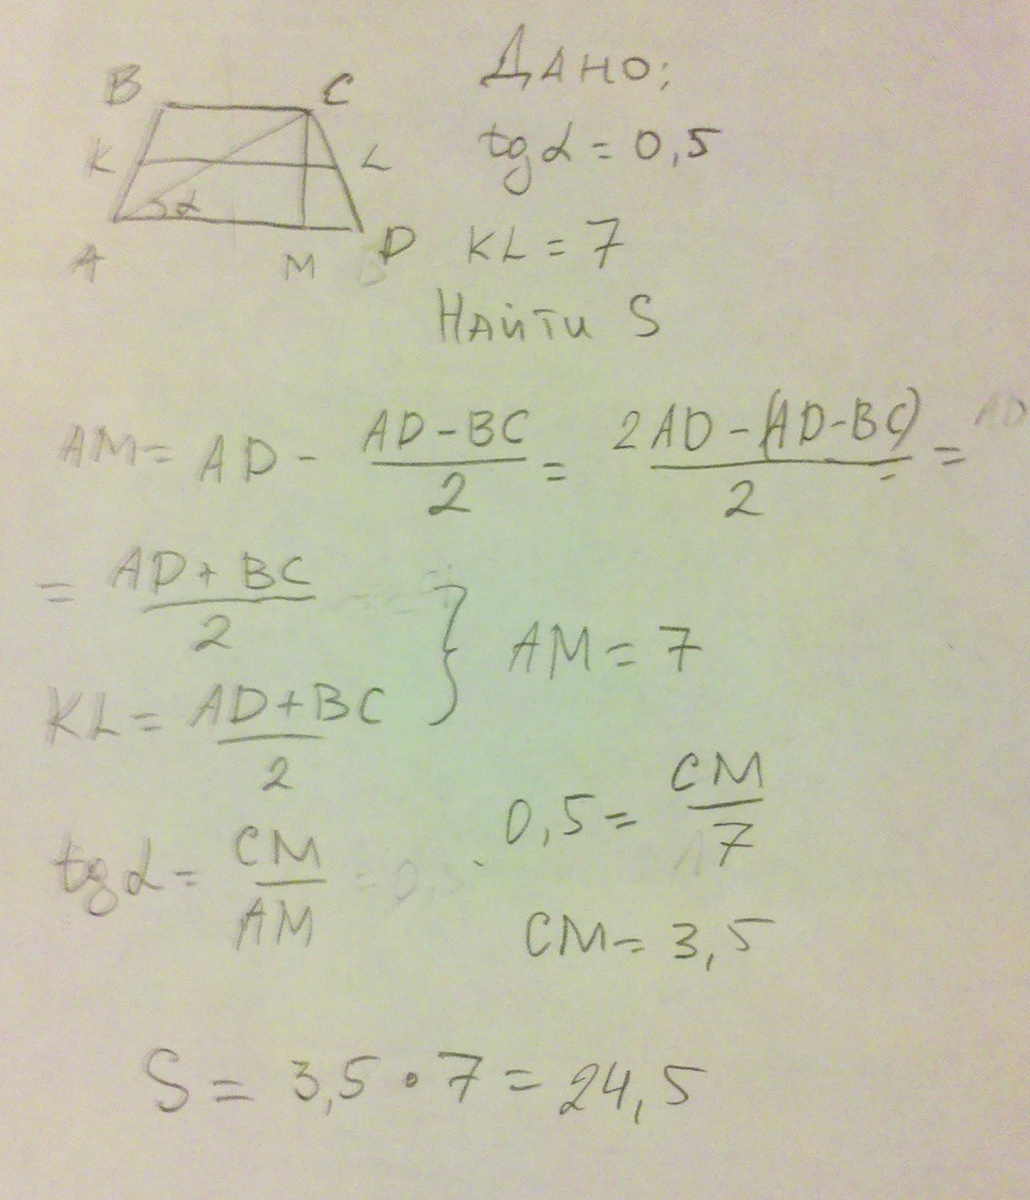 B C
Дано;
K L
tg α = 0,5
α
A M D
KL = 7
Найти S
AM = AD - \frac{AD-BC}{2} = \frac{2AD-(AD-BC)}{2} =
= \frac{AD+BC}{2}
} AM = 7
KL = \frac{AD+BC}{2}
0,5 = \frac{CM}{7}
tg α = \frac{CM}{AM}
CM = 3,5
S = 3,5 · 7 = 24,5